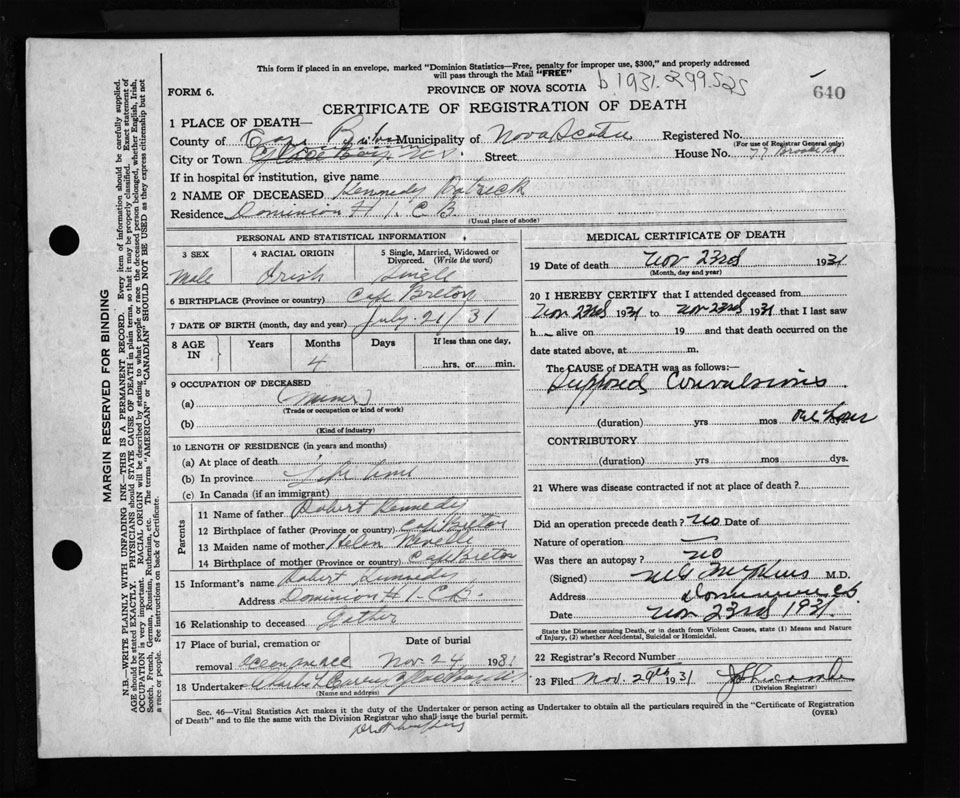 This form if placed in an envelope, marked "Dominion Statistics—Free, penalty for improper use, $300," and properly addressed
will pass through the Mail "FREE"
FORM 6.
PROVINCE OF NOVA SCOTIA
b.1931.299525
640
CERTIFICATE OF REGISTRATION OF DEATH
1 PLACE OF DEATH—
County of Cape Breton Municipality of Nova Scotia Registered No.
(For use of Registrar General only)
City or Town Glace Bay N.S. Street House No. 77
If in hospital or institution, give name
2 NAME OF DECEASED Kennedy Patrick
Residence Dominion # 1. C.B.
(Usual place of abode)
PERSONAL AND STATISTICAL INFORMATION
3 SEX 4 RACIAL ORIGIN 5 Single, Married, Widowed or Divorced. (Write the word)
Male Irish Single
6 BIRTHPLACE (Province or country) Cape Breton
7 DATE OF BIRTH (month, day and year) July. 21/31
8 AGE IN Years Months Days If less than one day,
4 hrs. or min.
9 OCCUPATION OF DECEASED
(a)
(Trade or occupation or kind of work)
(b)
(Kind of industry)
10 LENGTH OF RESIDENCE (in years and months)
(a) At place of death
(b) In province Life time
(c) In Canada (if an immigrant)
Parents
11 Name of father Robert Kennedy
12 Birthplace of father (Province or country) Cape Breton
13 Maiden name of mother Helen
14 Birthplace of mother (Province or country) Cape Breton
15 Informant's name Robert Kennedy
Address Dominion # 1. C.B.
16 Relationship to deceased Father
17 Place of burial, cremation or Date of burial
removal Nov. 24, 1931
18 Undertaker Glace Bay N.S.
(Name and address)
MEDICAL CERTIFICATE OF DEATH
19 Date of death Nov 23rd 1931
(Month, day and year)
20 I HEREBY CERTIFY that I attended deceased from
Nov 23rd 1931 to Nov 23rd 1931 that I last saw
h alive on 19 and that death occurred on the
date stated above, at m.
The CAUSE of DEATH was as follows:—
Supposed Convulsions
(duration) yrs mos One hour
CONTRIBUTORY
(duration) yrs. mos. dys.
21 Where was disease contracted if not at place of death?
Did an operation precede death? no Date of
Nature of operation
Was there an autopsy? no
(Signed) M.D.
Address Dominion CB
Date Nov 23rd 1931
State the Disease causing Death, or in death from Violent Causes, state (1) Means and Nature
of Injury, (2) whether Accidental, Suicidal or Homicidal.
22 Registrar's Record Number
23 Filed Nov. 29th 1931
(Division Registrar)
Sec. 46—Vital Statistics Act makes it the duty of the Undertaker or person acting as Undertaker to obtain all the particulars required in the "Certificate of Registration
of Death" and to file the same with the Division Registrar who shall issue the burial permit.
(OVER)
MARGIN RESERVED FOR BINDING
N.B.—WRITE PLAINLY WITH UNFADING INK—THIS IS A PERMANENT RECORD. Every item of information should be carefully supplied.
AGE should be stated EXACTLY. PHYSICIANS should STATE CAUSE OF DEATH in plain terms, so that it may be properly classified. Exact statement of
OCCUPATION is very important. RACIAL ORIGIN will be described by stating to what people or race the deceased person belonged, whether English, Irish,
Scotch, French, German, Russian, Ruthenian, etc. The terms "AMERICAN" or "CANADIAN" SHOULD NOT BE USED as they express citizenship but not
a race or people. See instructions on back of Certificate.